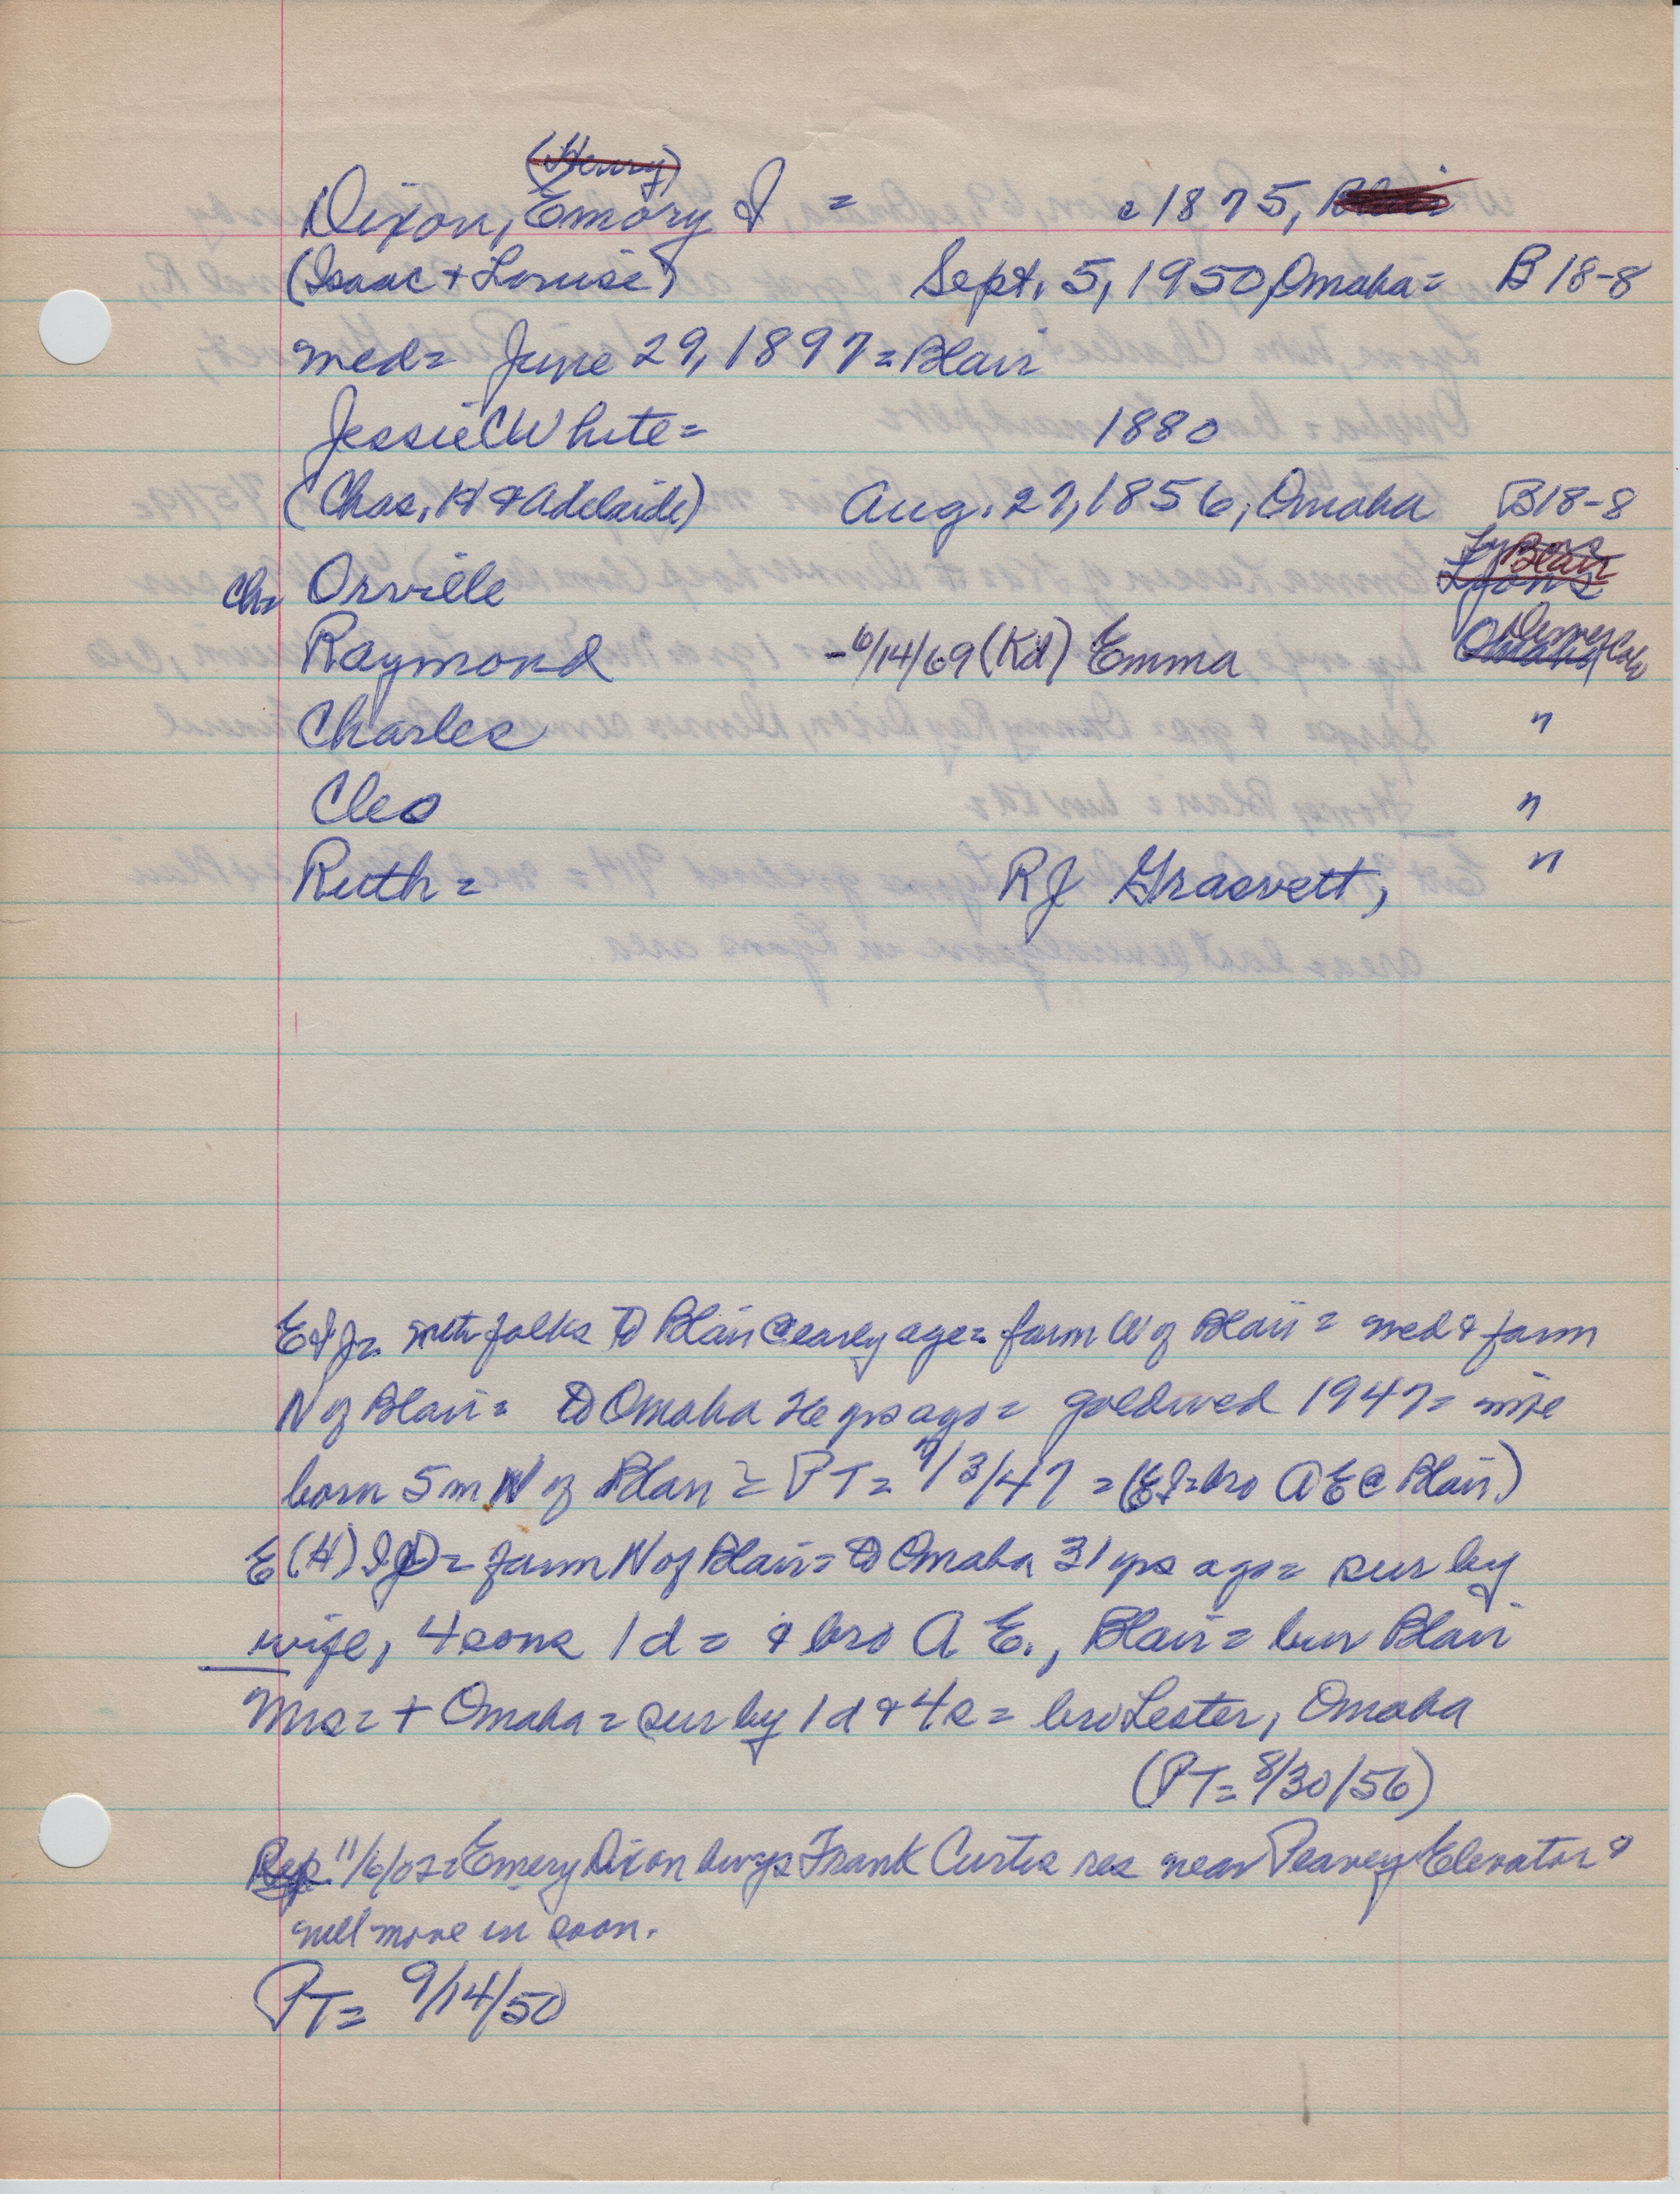 (Henry)
Dixon, Emory I = c 1875, Blair
(Isaac + Louise) Sept. 5, 1950, Omaha = B 18-8
med = June 29, 1897 = Blair
Jessie White = 1880
(Chas. H & Adelaide) Aug. 27, 1856, Omaha B18-8
Lyons
Ch= Orville Lyons Blair
Raymond - 6/14/69 (Kd) Emma Omaha Denver Colo
Charles "
Cleo "
Ruth = R J Grasvett, "
E I J = with folks to Blair @ early age = farm W of Blair = med & farm
N of Blair = to Omaha 26 yrs ago = goldwed 1947 = wife
born 5 m N of Blair = PT = 7/3/47 = (EI = bro A E @ Blair)
E (H) I D = farm N of Blair = to Omaha 31 yrs ago = sur by
wife, 4 sons 1 d = & bro A E., Blair = bur Blair
Mrs = + Omaha = sur by 1 d & 4 s = bro Lester, Omaha
(PT = 8/30/56)
Rep. 11/6/02 = Emery Dixon buys Frank Curtis res near Peavey Elevator &
will move in soon.
PT = 9/14/50